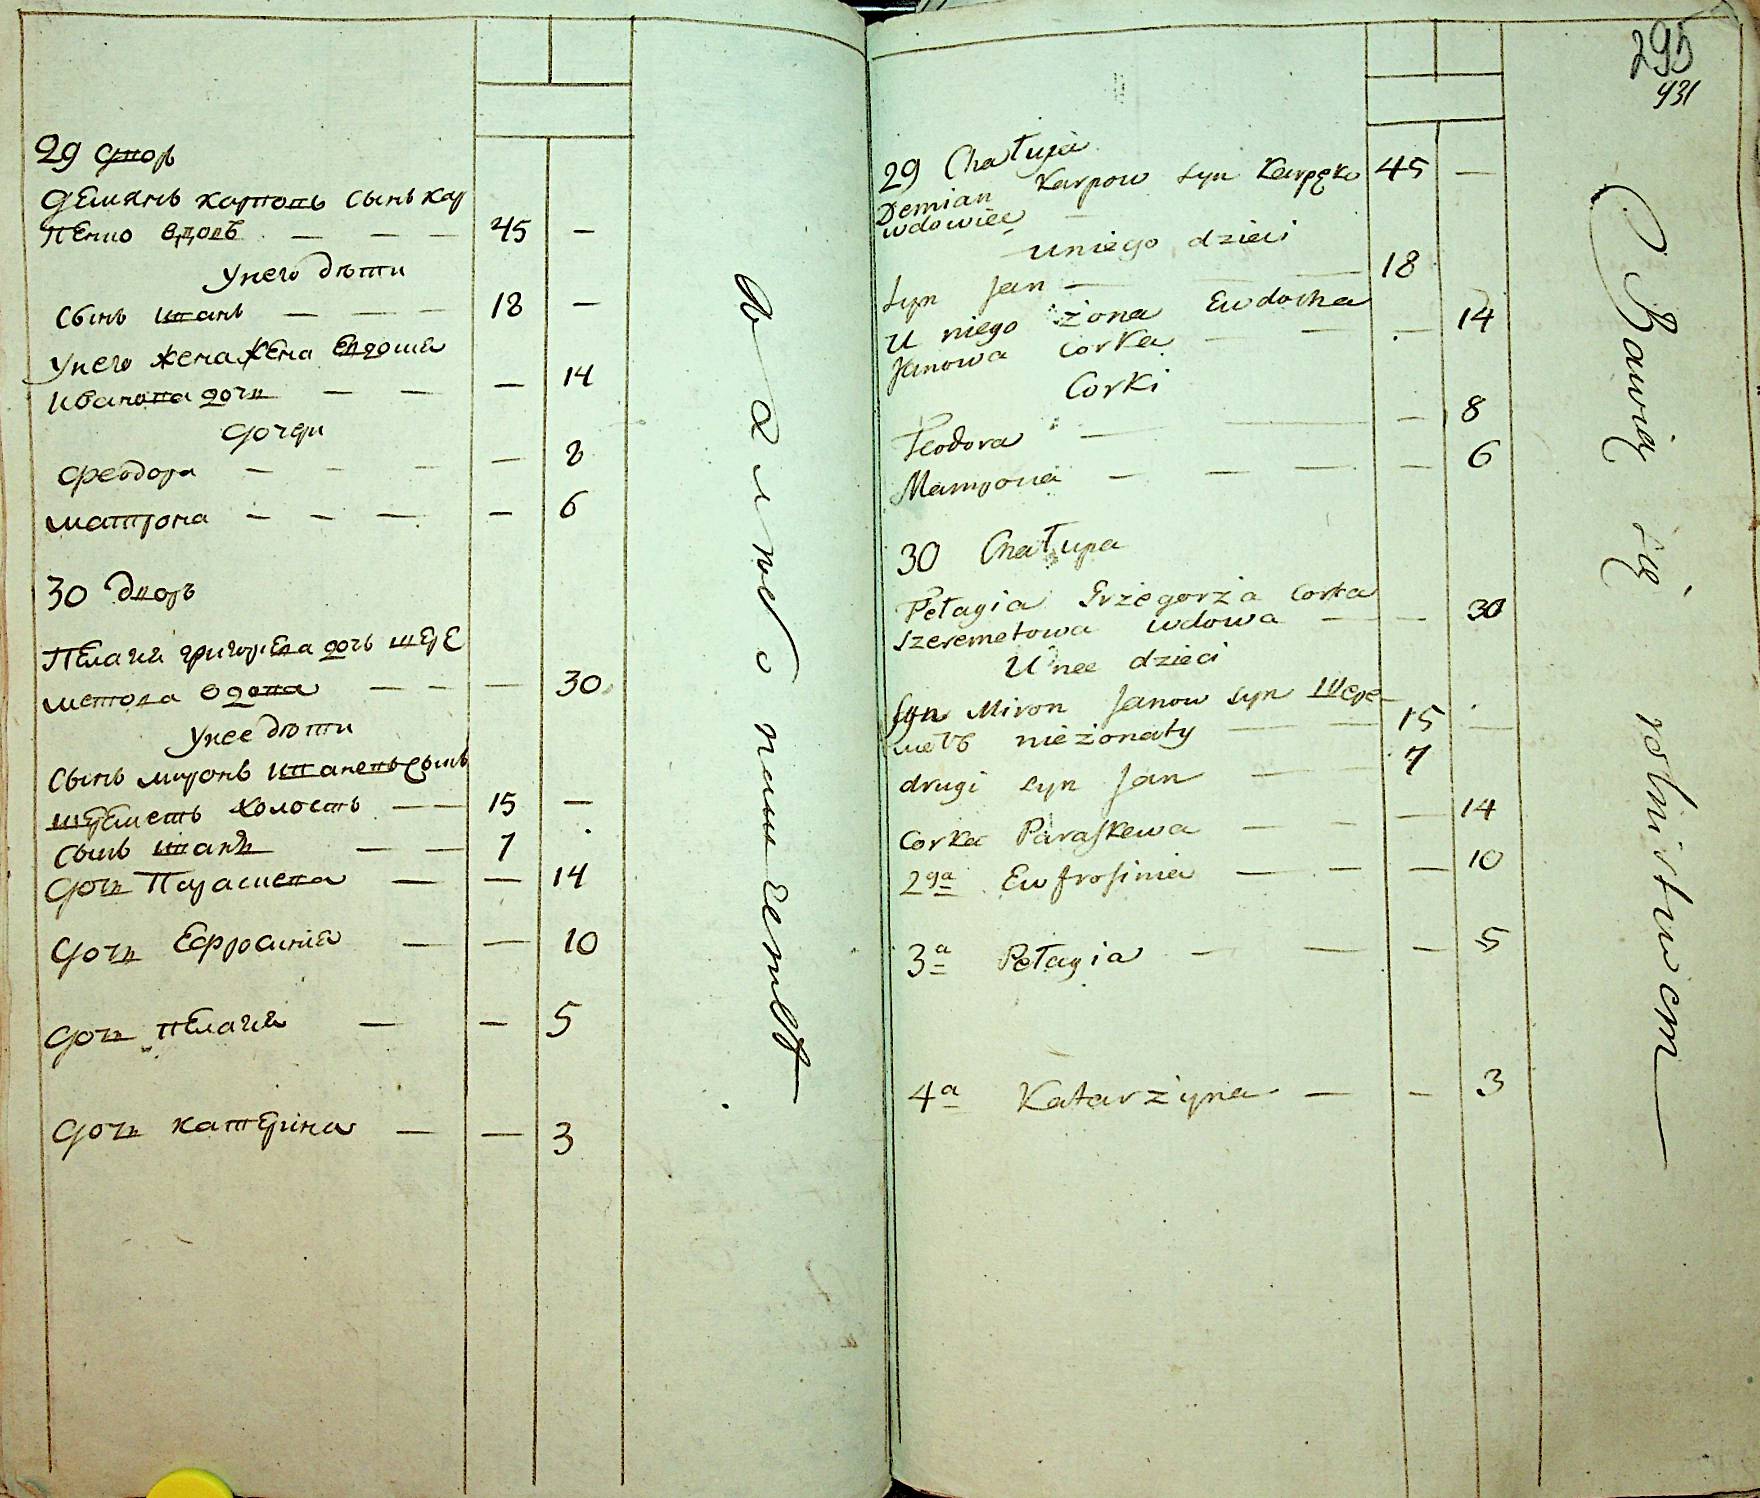 29 дворъ
Демянъ карповъ сынъ кар
пенко вдовъ — — — 45 —
у него дѣти
сынъ иванъ — — — 18 —
у него жена жена евдоша
иванова дочь — — — 14
дочери
феодора — — — — 8
матрона — — — — 6
30 дворъ
Пелагия григорева дочь шере
метова вдова — — — 30
у нее дѣти
сынъ миронъ ивановъ сынъ
шереметъ холостъ — — 15 —
сынъ иванъ — — 7
дочь Параскева — — 14
дочь Ефросиния — — 10
дочь пелагия — — 5
дочь катерина — — 3
295
431
29 Chałupa
Demian Karpow syn Karpęko 45 —
wdowiec —
u niego dzieci
syn Jan — — — 18
U niego żona Eudocha
Janowa corka — — — 14
Corki
Feodora — — — — 8
Matrona — — — — 6
30 Chałupa
Pełagia Grzegorża corka
Szeremetowa wdowa — — 30
U nee dzieci
syn Miron Janow syn Шере-
метъ nieżonaty — — 15 —
drugi syn Jan — — 7
corka Paraskewa — — — 14
2ga Eufrosinia — — — 10
3a Pełagia — — — 5
4a Katarżyna — — 3
Bawię się rolnistwem